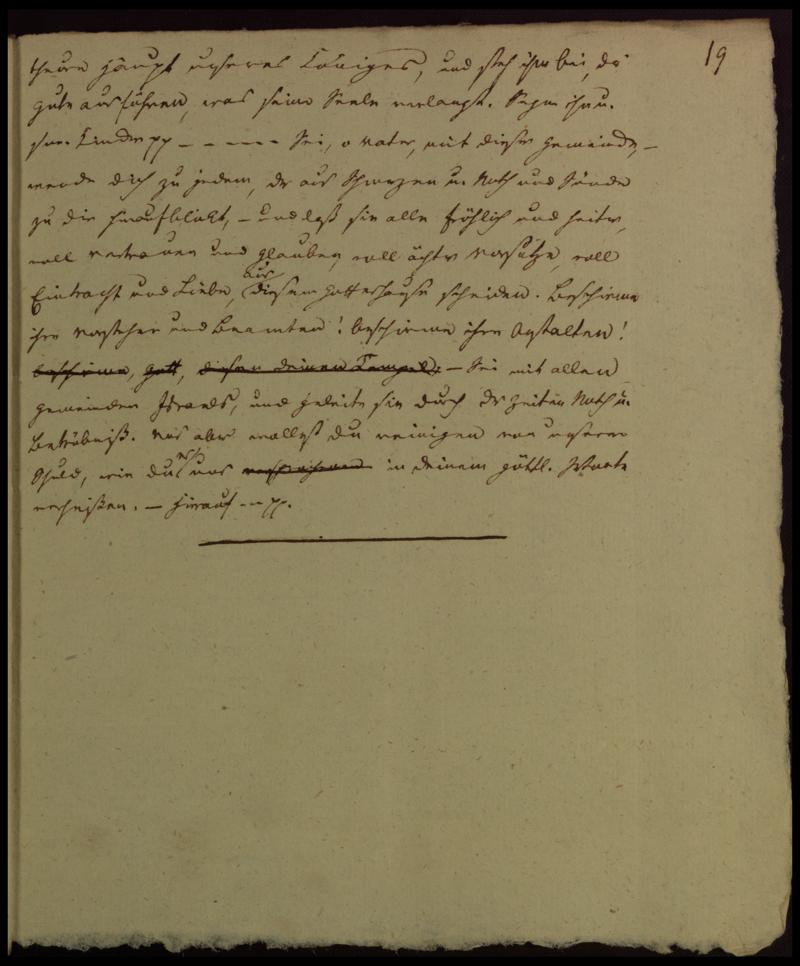 19
theure Haupt unseres Königes, und steh ihm bei, das
Gute ausführen, was seine Seele verlangt. Segne ihn u.
seine Kinder pp – – – – – Sei, o Vater, mit dieser Gemeinde, –
wende dich zu jedem, der aus Schmerzen u. Noth und Sünde
zu dir hinaufblickt, – und laß sie alle fröhlich und heiter,
voll Vertrauen und Glauben, voll ächter Vorsätze, voll
Eintracht und Liebe, aus diesem Gotteshause scheiden. Beschirme
ihre Vorsteher und Beamten! beschirme ihre Anstalten!
beschirme, Gott, diesen deinen Tempel! – Sei mit allen
Gemeinden Israels, und geleite sie durch der Zeiten Noth u.
Betrübniß. Uns aber wollest du reinigen von unserer
Schuld, wie du es uns in deinem göttl. Worte
verheißen. – Hierauf – – pp.